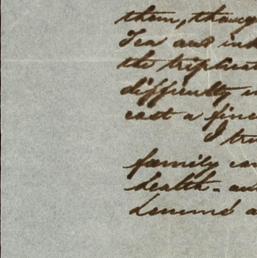 them, thoug
Tea and ind
the triplicat
difficulty
cost a fine
I tru
family can
health - an
Lemmé a